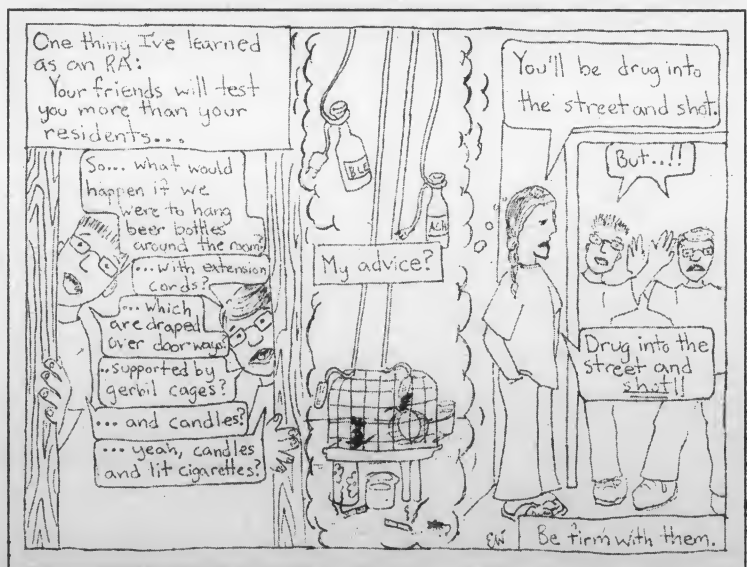 One thing I've learned
as an RA:
Your friends will test
you more than your
residents...
So... what would
happen if we
were to hang
beer bottles
around the room?
...with extension
cords?
...which
are draped
over doorways?
...supported by
gerbil cages?
... and candles?
... yeah, candles
and lit cigarettes?
BLE
ACH
My advice?
You'll be drug into
the street and shot.
But..!!
Drug into the
street and
shot!!
EW
Be firm with them.